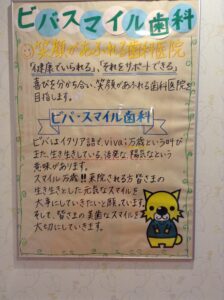 ビバスマイル歯科
笑顔があふれる歯科医院
「健康でいられる」、「それをサポートできる」
喜びを分かち合い、笑顔があふれる歯科医院を
目指します。
ビバ・スマイル歯科
ビバはイタリア語で、viva：万歳という叫び
また、生き生きしている、活発な、陽気なという
意味があります。
スマイル万歳!!来院される方皆さまの
生き生きとした元気なスマイルを
大事にしていきたいと願っています。
そして、皆さまの美歯なスマイルを
大切にしていきます。